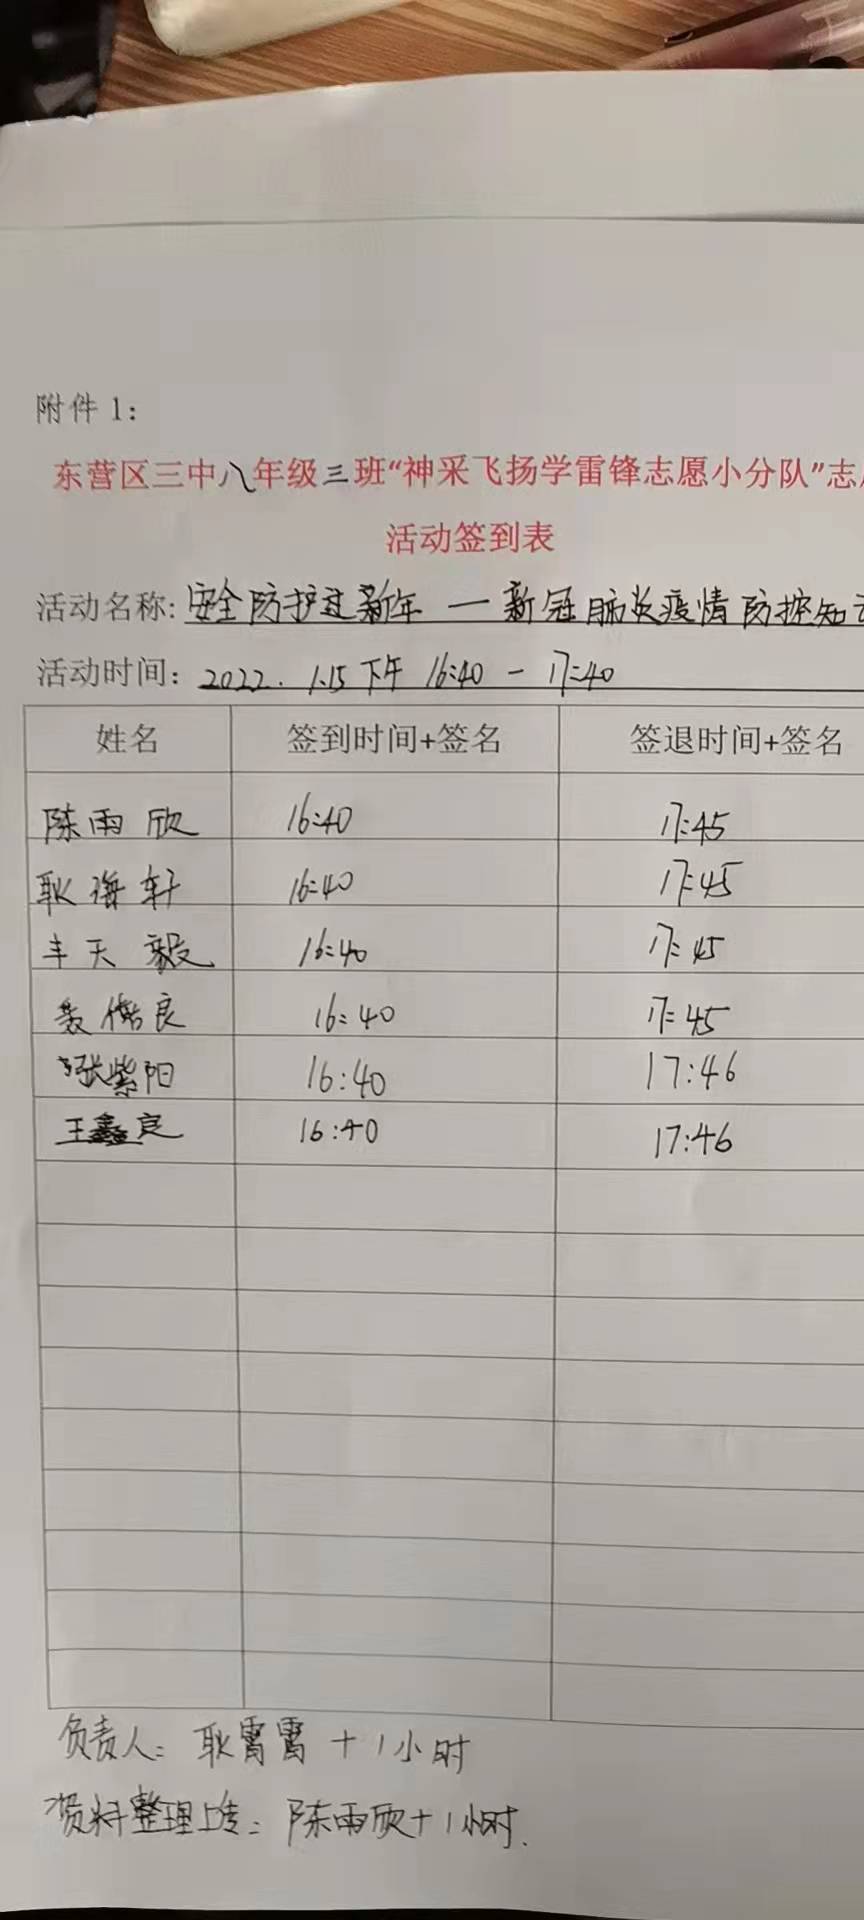 附件 1：
东营区三中八年级三班“神采飞扬学雷锋志愿小分队”志
活动签到表
活动名称: 安全防护过新年 — 新冠肺炎疫情防控知
活动时间： 2022. 1.15 下午 16:40 - 17:40
姓名 签到时间+签名 签退时间+签名
陈雨欣 16:40 17:45
耿海轩 16:40 17:45
丰天毅 16:40 17:45
良 16:40 17:45
张紫阳 16:40 17:46
王鑫 16:40 17:46
负责人: 耿霄霄 +1小时
资料整理上传: 陈雨欣+1小时.